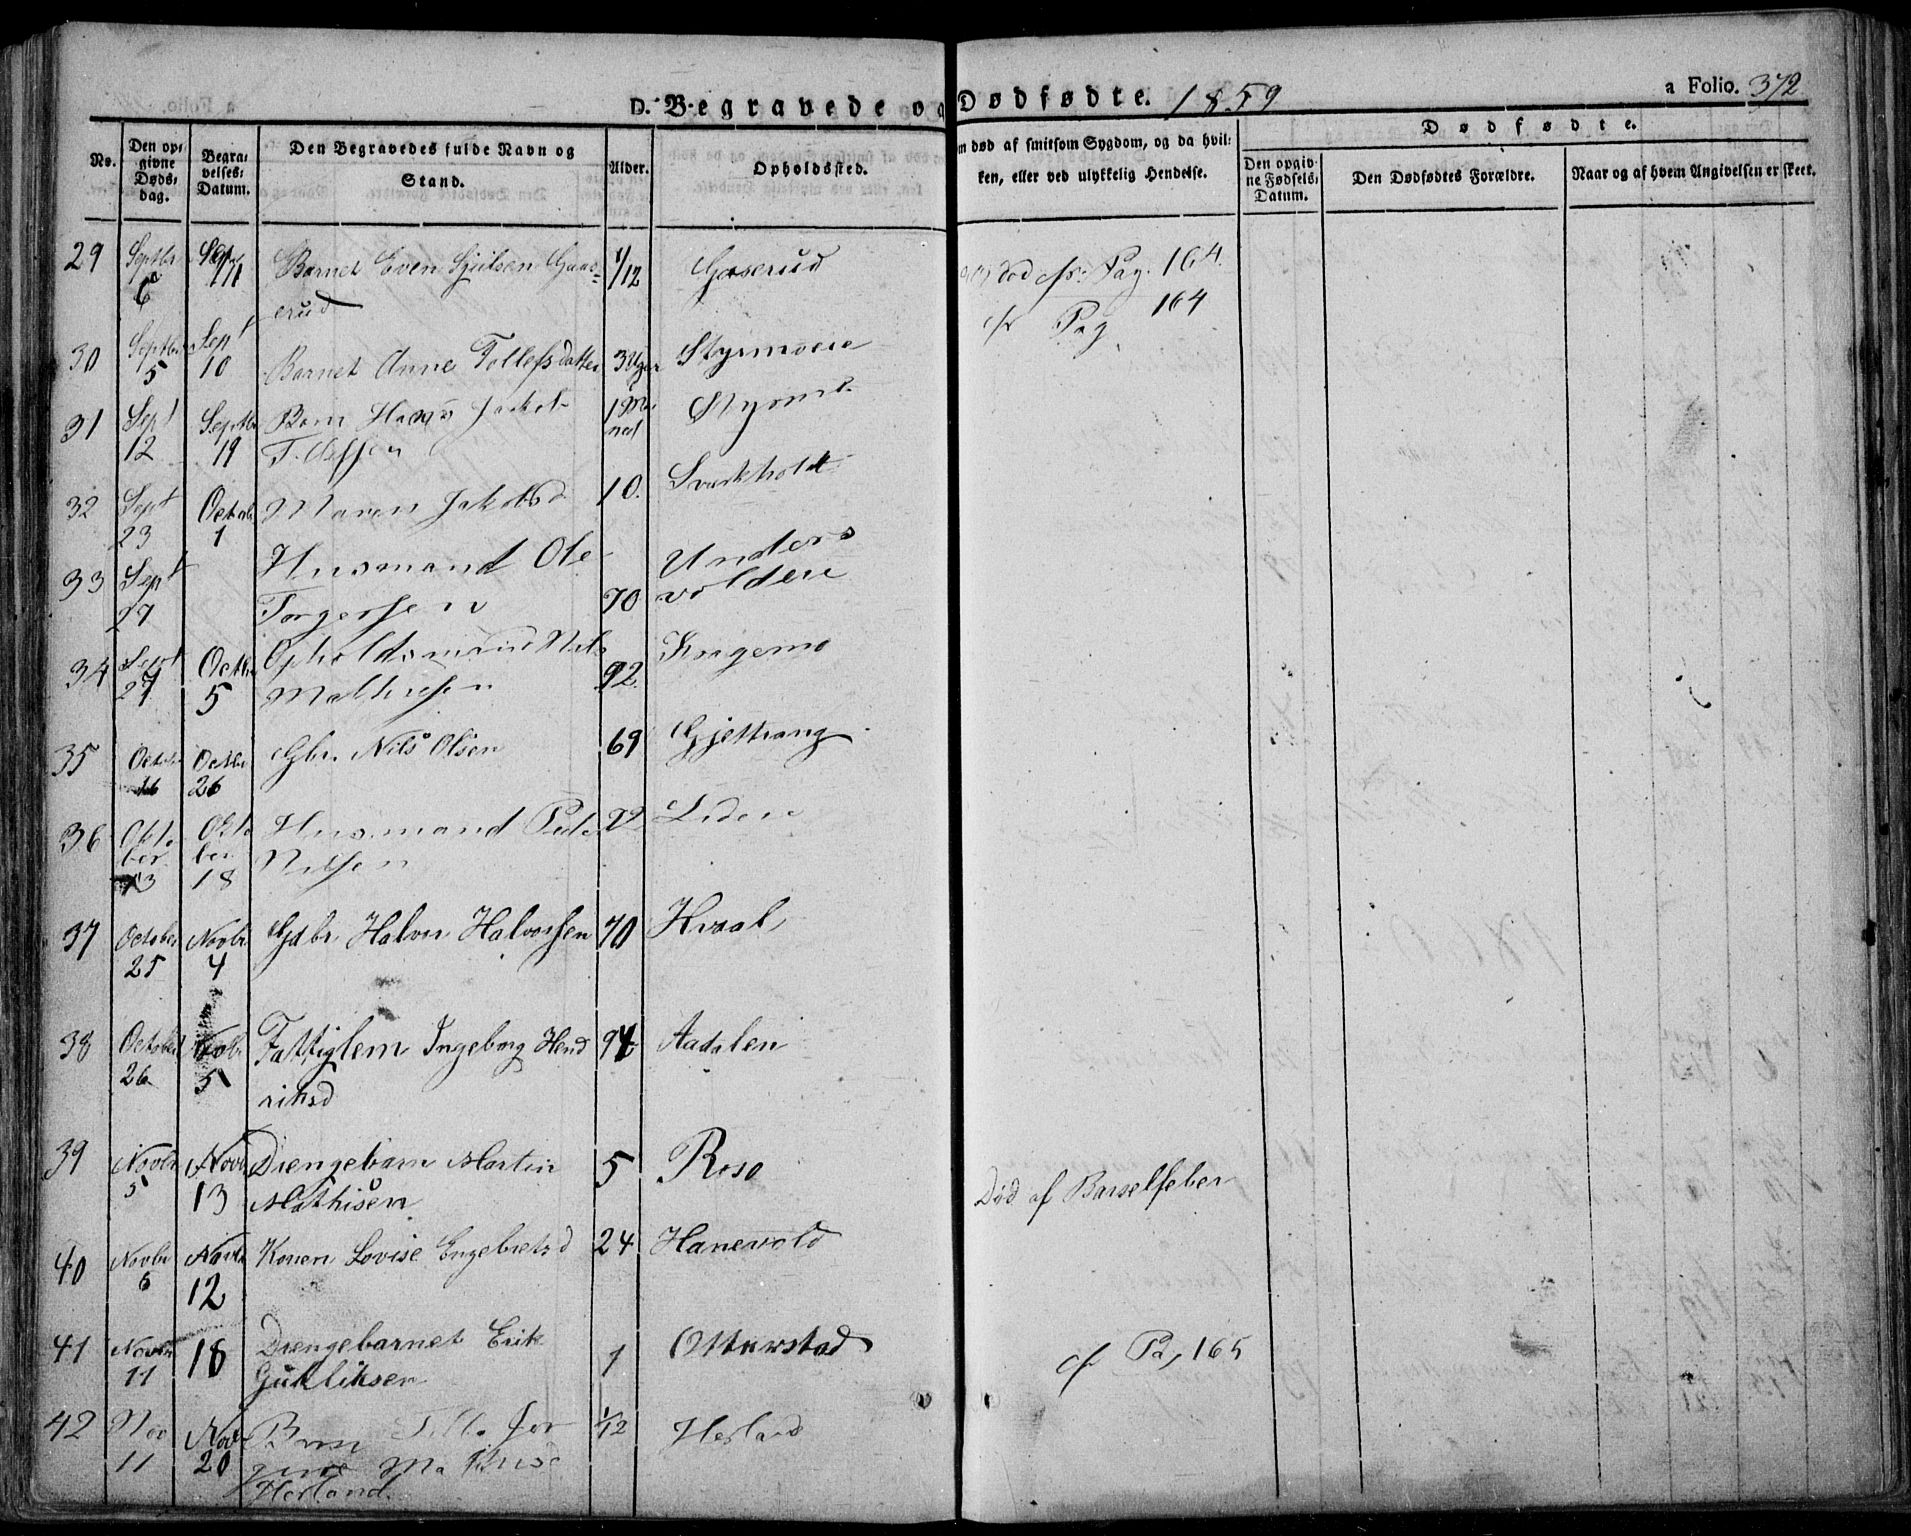 D. Begravede og Dødfødte. 1859
a Folio. 372
No.
Den opgivne Døds dag.
Begravelses Datum.
Den Begravedes fulde Navn og Stand.
Alder.
Opholdssted.
m død af smitsom Sygdom, og da hvil-
ken, eller ved ulykkelig Hendelse.
Dødfødte.
Den opgivne Fødsels Datum.
Den Dødfødtes Forældre.
Naar og af hvem Angivelsen er skeet.
29 Septbr 6 Sept 11 Barnet Even Gaaserud 1/12 Gaserud død cfr. Pag. 164.
cfr Pag 164
30 Septbr 5 Sept 10 Barnet Anne Tollefsdatter 3 Uger Styrmoen
31 Sept 12 Septbr 19 Barn Hans Jakob 1 Maaned Styrm
32 Sept 23 Octobr 1 Maren Jakobsd 10.
33 Sept 27 Husmand Ole
Torgersen 70
34 Sept 27 Octbr 5 Opholdsmand Nils
Mathisen 92 Kragemo
35 Octobr 16 Octbr 26 Gbr. Nils Olsen 69 Gjettrang
36 Oktober 13 Oktober 18 Husmand Peder
Nilsen Lidere
37 October 25 Novbr 4 Gdbr. Halvor Halvorsen 70 Hvaal
38 October 26 Novbr 5 Fattiglem Ingeborg Hend
riksd 94 Aadalen
39 Novbr 5 Novbr 13 Drengebarn Martin
Mathisen 5 Roso
Død af Barselfeber
40 Novbr 6 Novbr 12 Konen Lovise Engebretsd 24 Hanevold
41 Novbr 11 18 Drengebarnet Erik
Gulliksen 1 Otterstad cfr Pa, 165
42 Nov 11 Novbr 20 Barn
Herland. 1/12 Herland